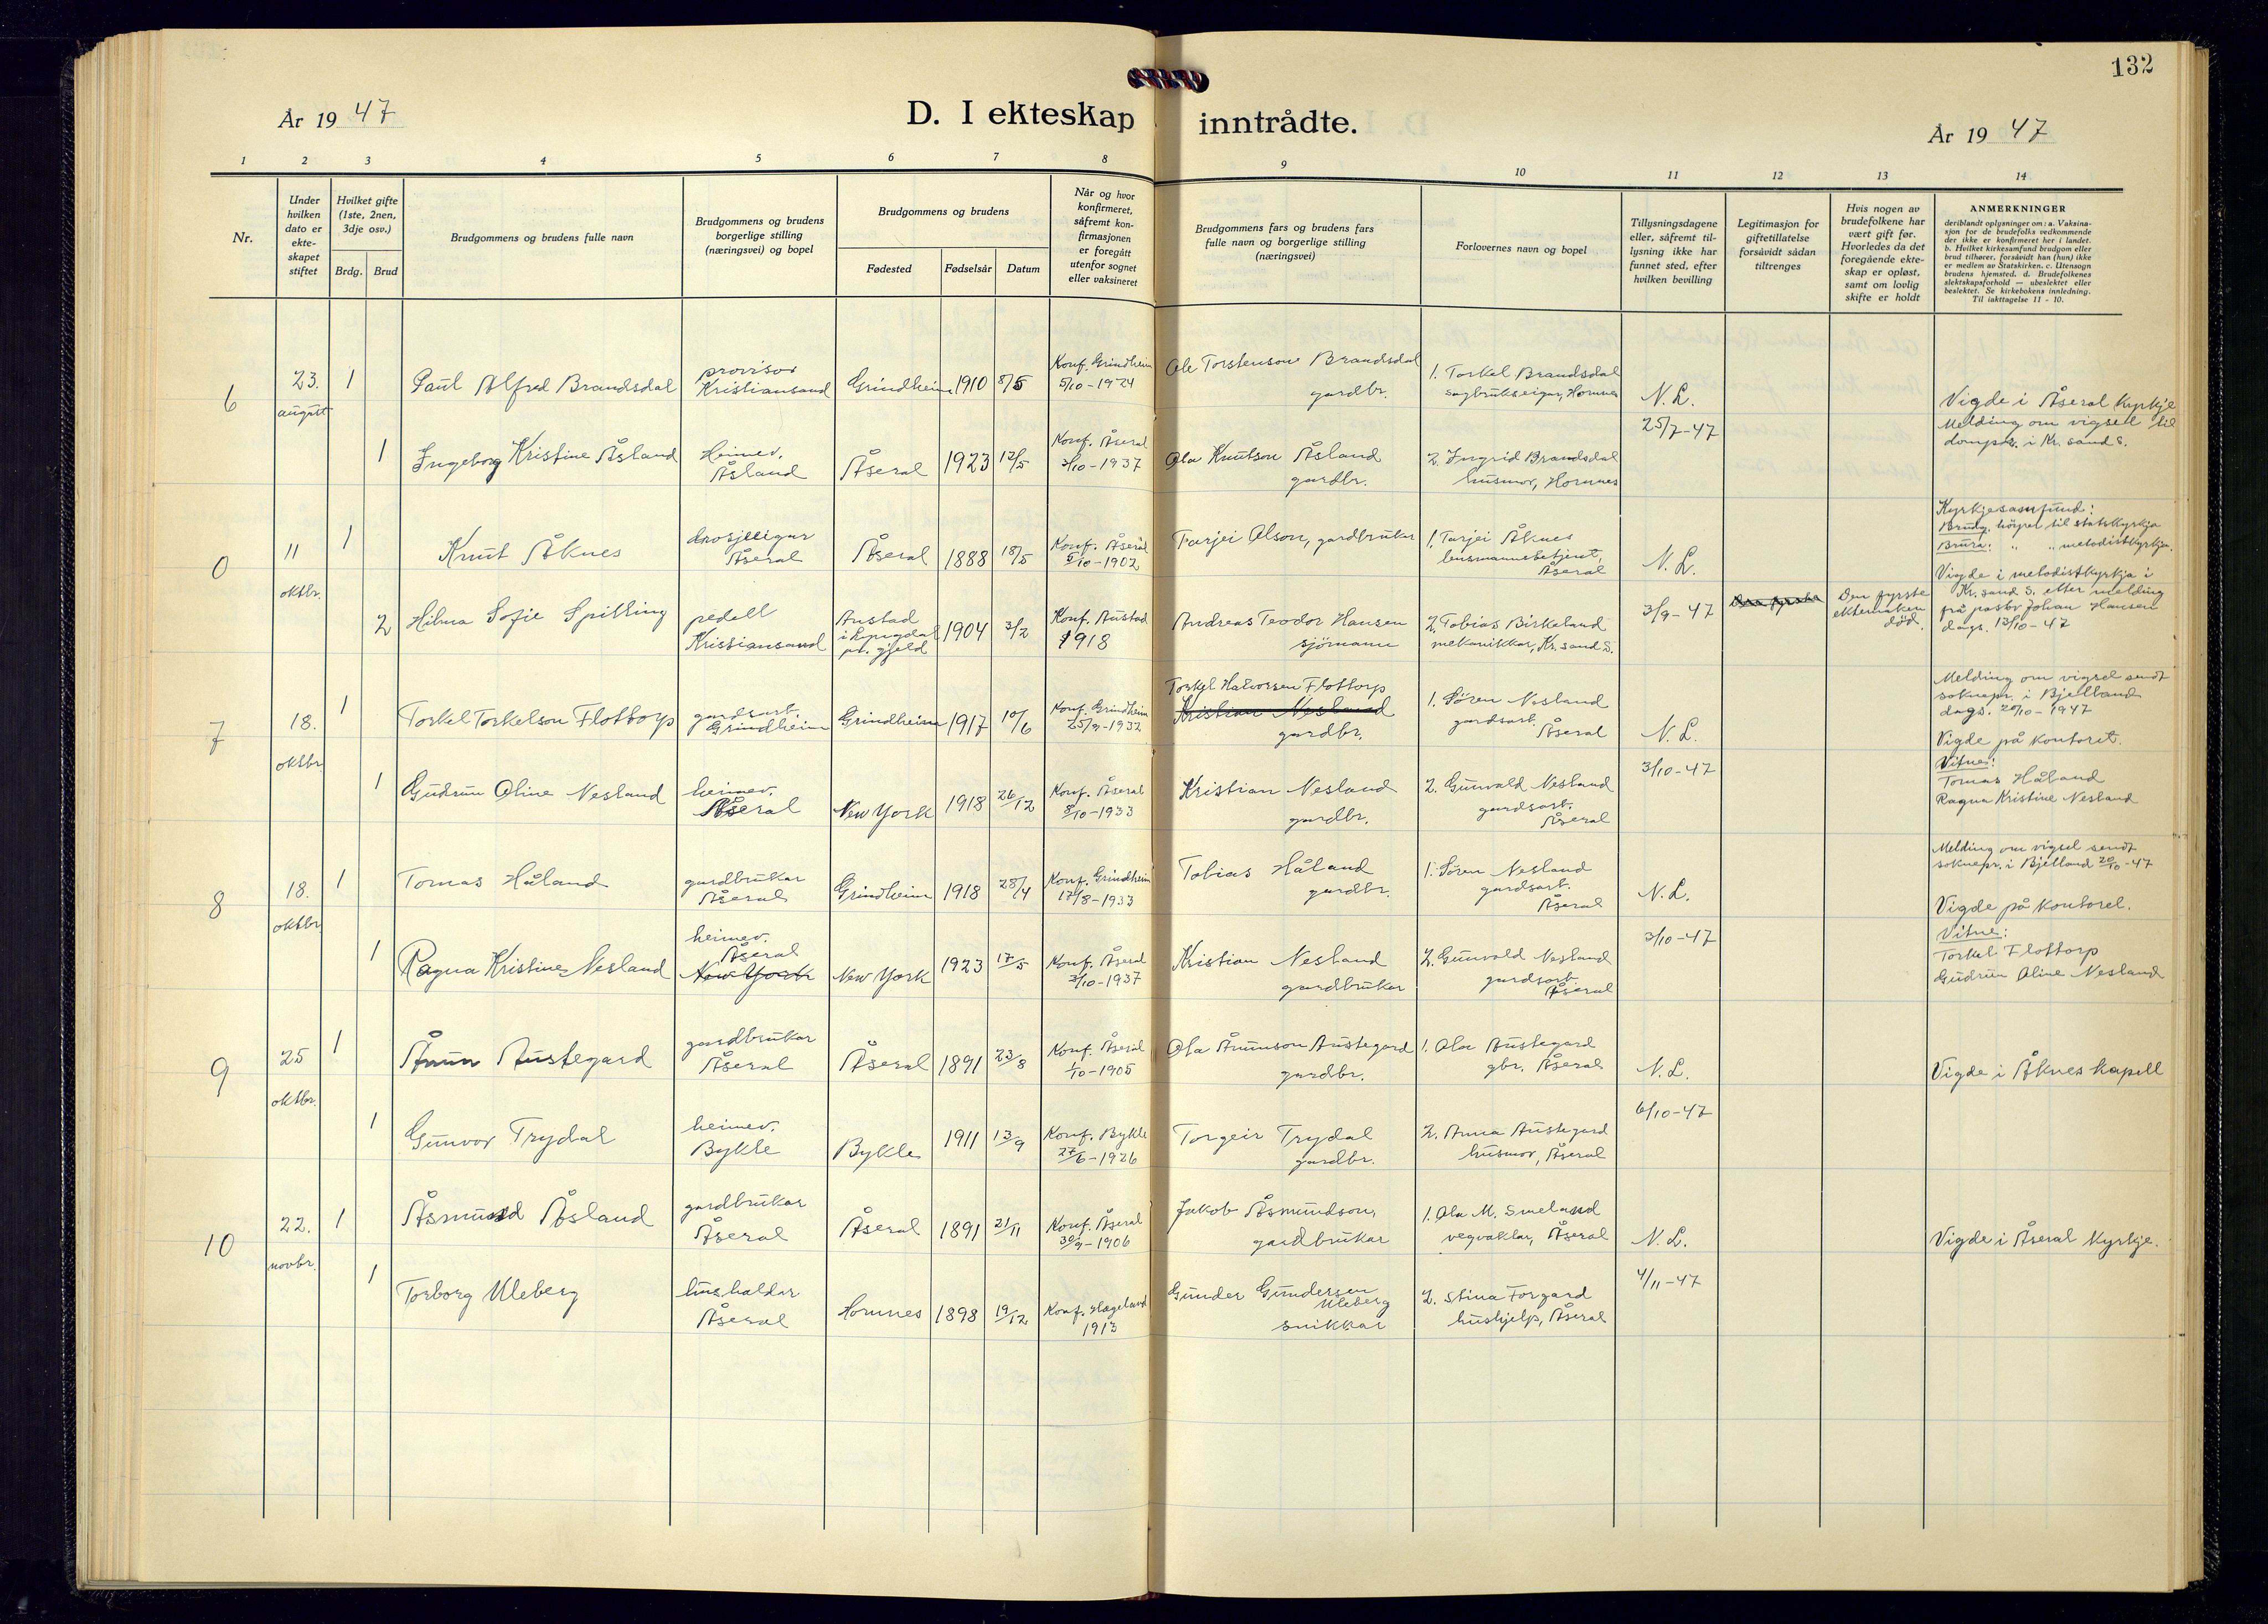 132
År 1947
D. I ekteskap inntrådte.
År 1947
1 2 3 4 5 6 7 8 9 10 11 12 13 14
Nr.
Under
hvilken
dato er
ekte-
skapet
stiftet
Hvilket gifte
(1ste, 2nen,
3dje osv.)
Brdg. Brud
Brudgommens og brudens fulle navn
Brudgommens og brudens
borgerlige stilling
(næringsvei) og bopel
Brudgommens og brudens
Fødested Fødselsår Datum
Når og hvor
konfirmeret,
såfremt kon-
firmasjonen
er foregått
utenfor sognet
eller vaksineret
Brudgommens fars og brudens fars
fulle navn og borgerlige stilling
(næringsvei)
Forlovernes navn og bopel
Tillysningsdagene
eller, såfremt til-
lysning ikke har
funnet sted, efter
hvilken bevilling
Legitimasjon for
giftetillatelse
forsåvidt sådan
tiltrenges
Hvis nogen av
brudefolkene har
vært gift før.
Hvorledes da det
foregående ekte-
skap er opløst,
samt om lovlig
skifte er holdt
ANMERKNINGER
deriblandt oplysninger om: a. Vaksina-
sjon for de brudefolks vedkommende
der ikke er konfirmeret her i landet.
b. Hvilket kirkesamfund brudgom eller
brud tilhører, forsåvidt han (hun) ikke
er medlem av Statskirken. c. Utensogn
brudens hjemsted. d. Brudefolkenes
slektskapsforhold — ubeslektet eller
beslektet. Se kirkebokens innledning.
Til iakttagelse 11 - 10.
6
23.
august
1
Paul Alfred Brandsdal
provisor
Kristiansand
Grindheim 1910 8/5
Konf. Grindheim
5/10-1924
Ole Torstenson Brandsdal
gardbr.
1. Torkel Brandsdal
sagbrukseigar, Hornnes
N.L.
25/7-47
Vigde i Åseral Kyrkje
Melding om vigsel til
dompr. i Kr.sand S.
1
Ingeborg Kristine Åsland
Heimev.
Åsland
Åseral 1923 12/5
Konf. Åseral
3/10-1937
Ola Knutson Åsland
gardbr.
2. Ingrid Brandsdal
husmor, Hornnes
0
11
oktbr.
1
Knut Åknes
drosjeeigar
Åseral
Åseral 1888 18/5
Konf. Åseral
5/10-1902
Tarjei Olson, gardbrukar
1. Tarjei Åknes
lensmannsbetjent,
Åseral
N.L.
3/9-47
Kyrkjesamfund:
Brudg. høyrer til statskyrkja
Brura: " " metodistkyrkja.
Vigde i metodistkyrkja i
Kr.sand S. etter melding
frå pastor Johan Hansen
dags. 13/10-47
2
Hilma Sofie Spilling
pedell
Kristiansand
Austad
i Lyngdal
pr. gjeld
1904 3/2
Konf. Austad
1918
Andreas Teodor Hansen
sjømann
2. Tobias Birkeland
mekanikkar, Kr.sand S.
Den fyrste
Den fyrste
ektemaken
død.
7
18.
oktbr.
1
Torkel Torkelson Flottorp
gardsarb.
Grindheim
Grindheim 1917 10/6
Konf. Grindheim
25/9-1932
Torkel Halvorsen Flottorp
Kristian Nesland
gardbr.
1. Søren Nesland
gardsarb.
Åseral
N.L.
3/10-47
Melding om vigsel sendt
soknepr. i Bjelland
dags. 20/10-1947
Vigde på kontoret.
Vitne:
Tomas Håland
Ragna Kristine Nesland
1
Gudrun Oline Nesland
heimev.
Åseral
New York 1918 26/12
Konf. Åseral
8/10-1933
Kristian Nesland
gardbr.
2. Gunvald Nesland
gardsarb.
Åseral
8
18.
oktbr
1
Tomas Håland
gardbrukar
Åseral
Grindheim 1918 28/4
Konf. Grindheim
17/8-1933
Tobias Håland
gardbr.
1. Søren Nesland
gardsarb.
Åseral
N.L.
3/10-47
Melding om vigsel sendt
soknepr. i Bjelland 20/10-47
Vigde på kontoret.
Vitne:
Torkel Flottorp
Gudrun Oline Nesland
1
Ragna Kristine Nesland
heimev.
Åseral
New York
New York 1923 17/5
Konf. Åseral
3/10-1937
Kristian Nesland
gardbrukar
2. Gunvald Nesland
gardsarb.
Åseral
9
25
oktbr.
1
Ånun Austegard
gardbrukar
Åseral
Åseral 1891 23/8
Konf. Åseral
1/10-1905
Ola Ånunson Austegard
gardbr.
1. Ola Austegard
gbr. Åseral
N.L.
6/10-47
Vigde i Åknes kapell
1
Gunvor Trydal
heimev.
Bykle
Bykle 1911 13/9
Konf. Bykle
27/6-1926
Torgeir Trydal
gardbr.
2. Anna Austegard
husmor, Åseral
10
22.
novbr.
1
Åsmund Åsland
gardbrukar
Åseral
Åseral 1891 21/11
Konf. Åseral
30/9-1906
Jakob Åsmundson,
gardbrukar
1. Ola M. Smeland
vegvaktar, Åseral
N.L.
4/11-47
Vigde i Åseral Kyrkje.
1
Torborg Uleberg
hushaldar
Åseral
Hornnes 1898 19/12
Konf. Hægeland
1913
Gunder Gundersen
Uleberg
snikkar
2. Stina Forgard
hushjelp, Åseral